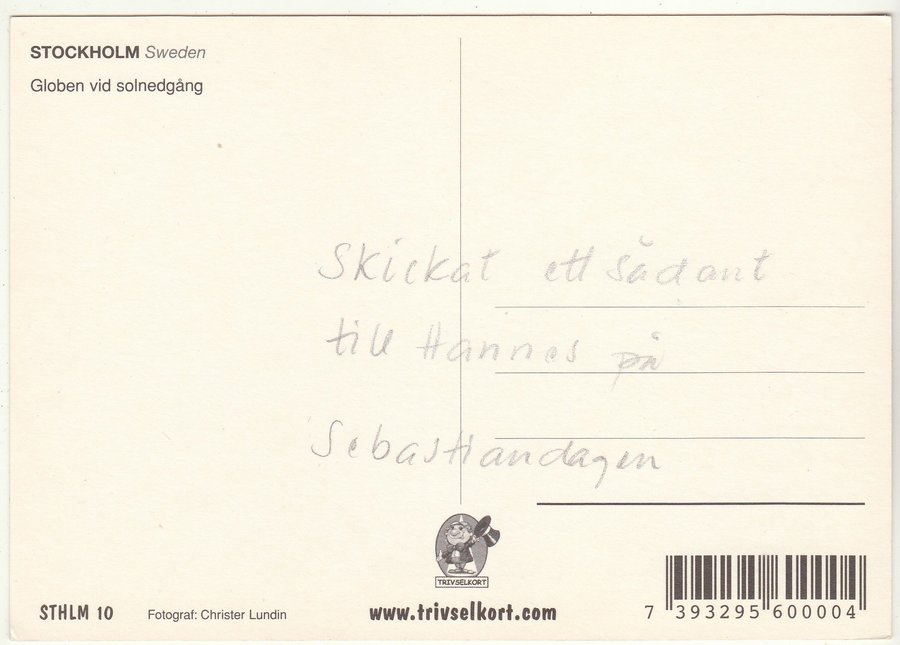 STOCKHOLM Sweden
Globen vid solnedgång
Skickat ett sådant
till Hannes på
Sebastiandagen
TRIVSELKORT
STHLM 10
Fotograf: Christer Lundin
www.trivselkort.com
7 393295 600004